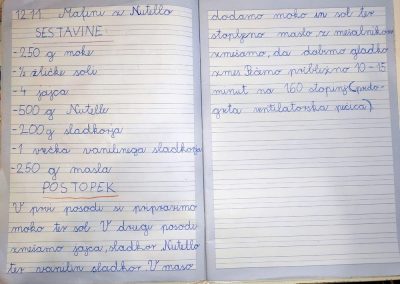 12.11. Mafini z Nutello
SESTAVINE
-250 g moke
-½ žličke soli
-4 jajca
-500 g Nutelle
-200 g sladkorja
-1 vrečka vanilinega sladkorja
-250 g masla
POSTOPEK
V prvi posodi si pripravimo
moko ter sol. V drugi posodi
zmešamo jajca, sladkor, Nutello
ter vanilin sladkor. V maso
dodamo moko in sol ter
stopljeno maslo z mešalnikom
zmešamo, da dobimo gladko
zmes. Pečemo približno 10-15
minut na 160 stopinj (predo-
greta ventilatorska pečica).